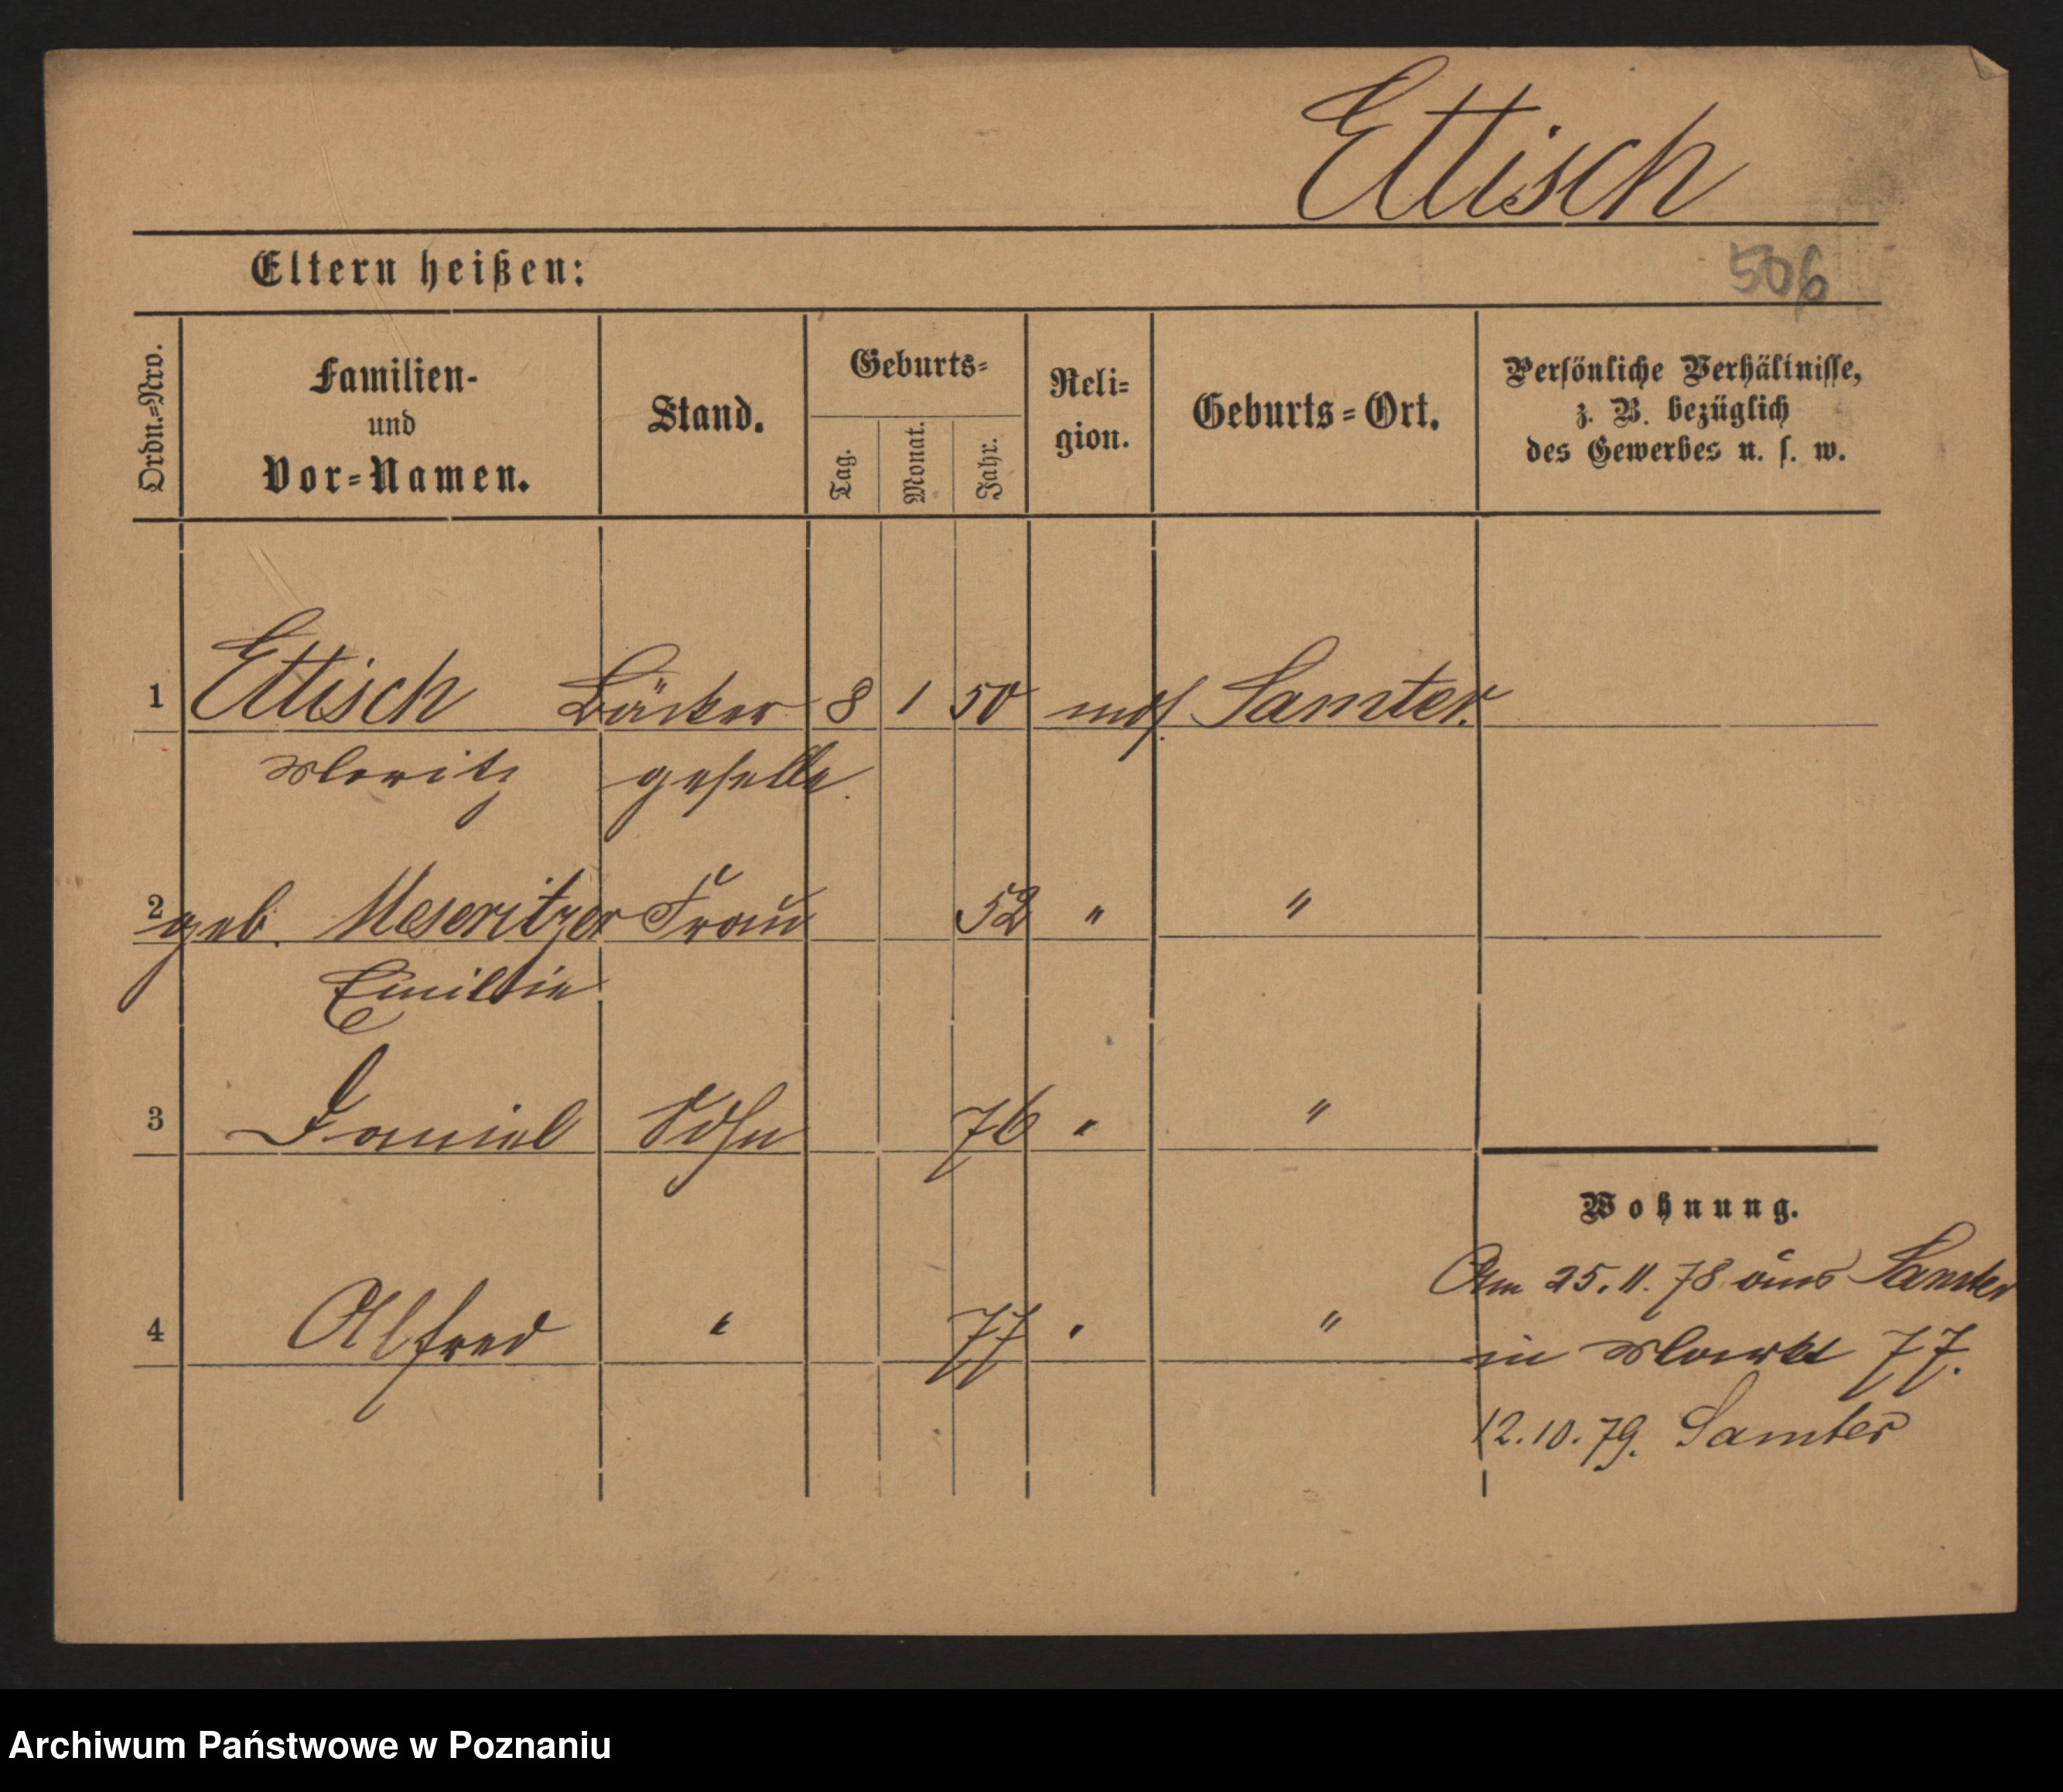 Ettisch
Eltern heißen:
506
Ordn.=Nro.
Familien-
und
Vor=Namen.
Stand.
Geburts=
Tag.
Monat.
Jahr.
Reli=
gion.
Geburts=Ort.
Persönliche Verhältnisse,
z. B. bezüglich
des Gewerbes u. s. w.
1 Ettisch Bäcker 8 1 50 mos. Samter.
Moritz geselle.
2 geb. Meseritzer Frau 52 " "
Emilie
3 Daniel Sohn 76 " "
Wohnung.
Am 25.11.78 aus Samter
4 Alfred " 77 " "
in Markt 77.
12.10.79. Samter
Archiwum Państwowe w Poznaniu